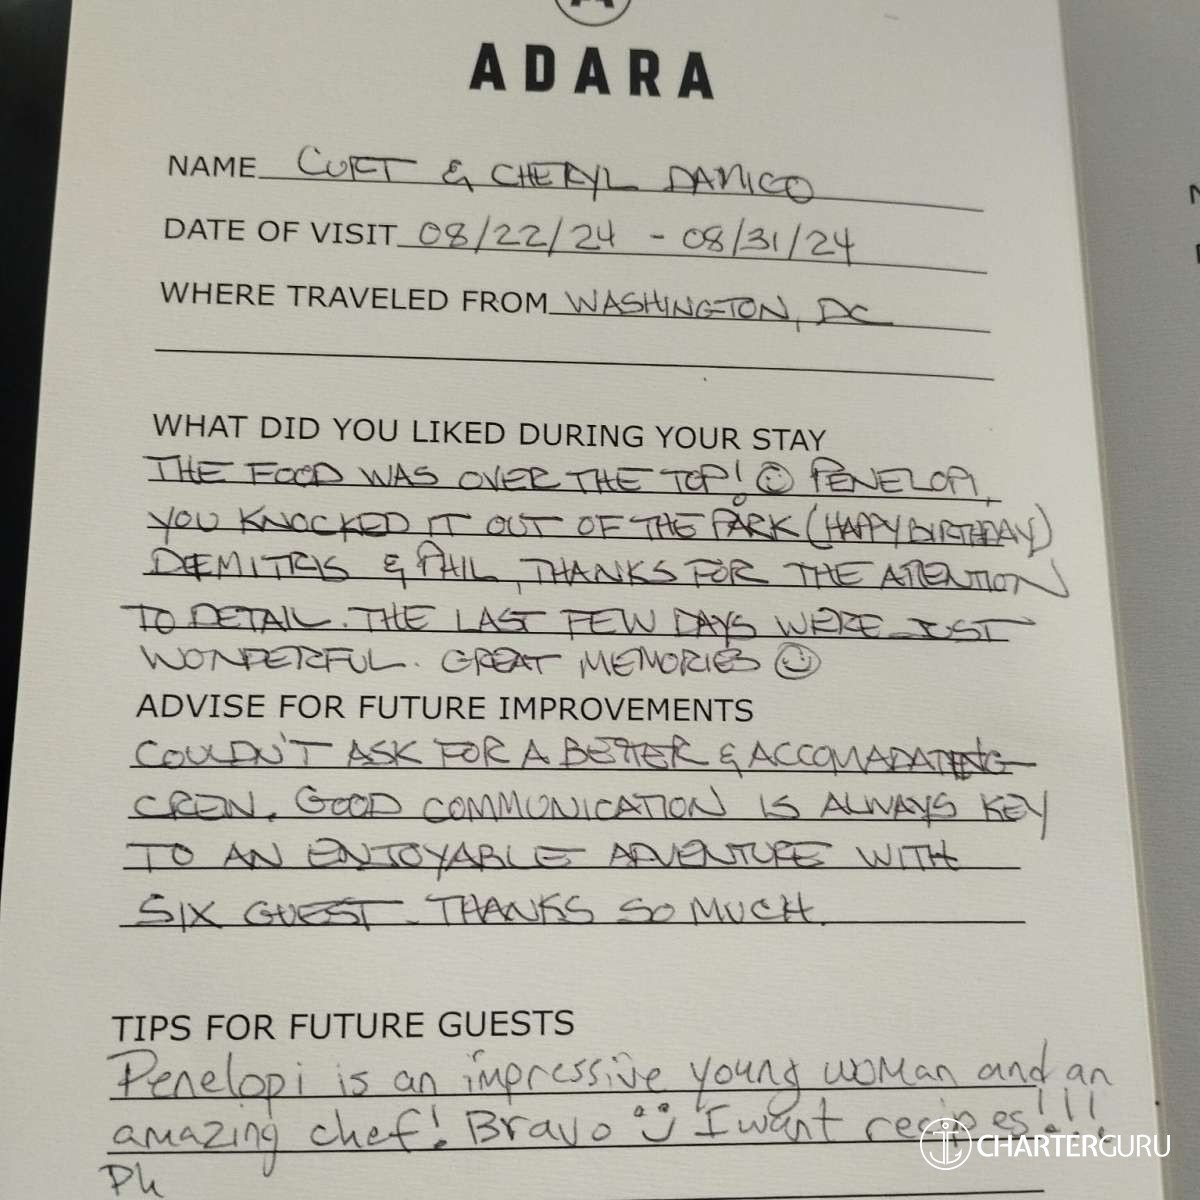 ADARA
NAME CURT & CHERYL DANICO
DATE OF VISIT 08/22/24 - 08/31/24
WHERE TRAVELED FROM WASHINGTON, DC
WHAT DID YOU LIKED DURING YOUR STAY
THE FOOD WAS OVER THE TOP! ☺ PENELOPI,
YOU KNOCKED IT OUT OF THE PARK (HAPPY BIRTHDAY)
DEMITRIS & PHIL, THANKS FOR THE ATENTION
TO DETAIL. THE LAST FEW DAYS WERE JUST
WONDERFUL. GREAT MEMORIES ☺
ADVISE FOR FUTURE IMPROVEMENTS
COULDN'T ASK FOR A BETTER & ACCOMADATING
CREW. GOOD COMMUNICATION IS ALWAYS KEY
TO AN ENJOYABLE ADVENTURE WITH
SIX GUEST. THANKS SO MUCH.
TIPS FOR FUTURE GUESTS
Penelopi is an impressive young woman and an
amazing chef! Bravo ☺ I want recipes!!!
CHARTERGURU
Ph